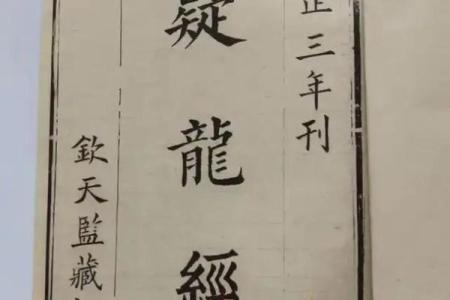 正三年刊
疑龍經
欽天監藏